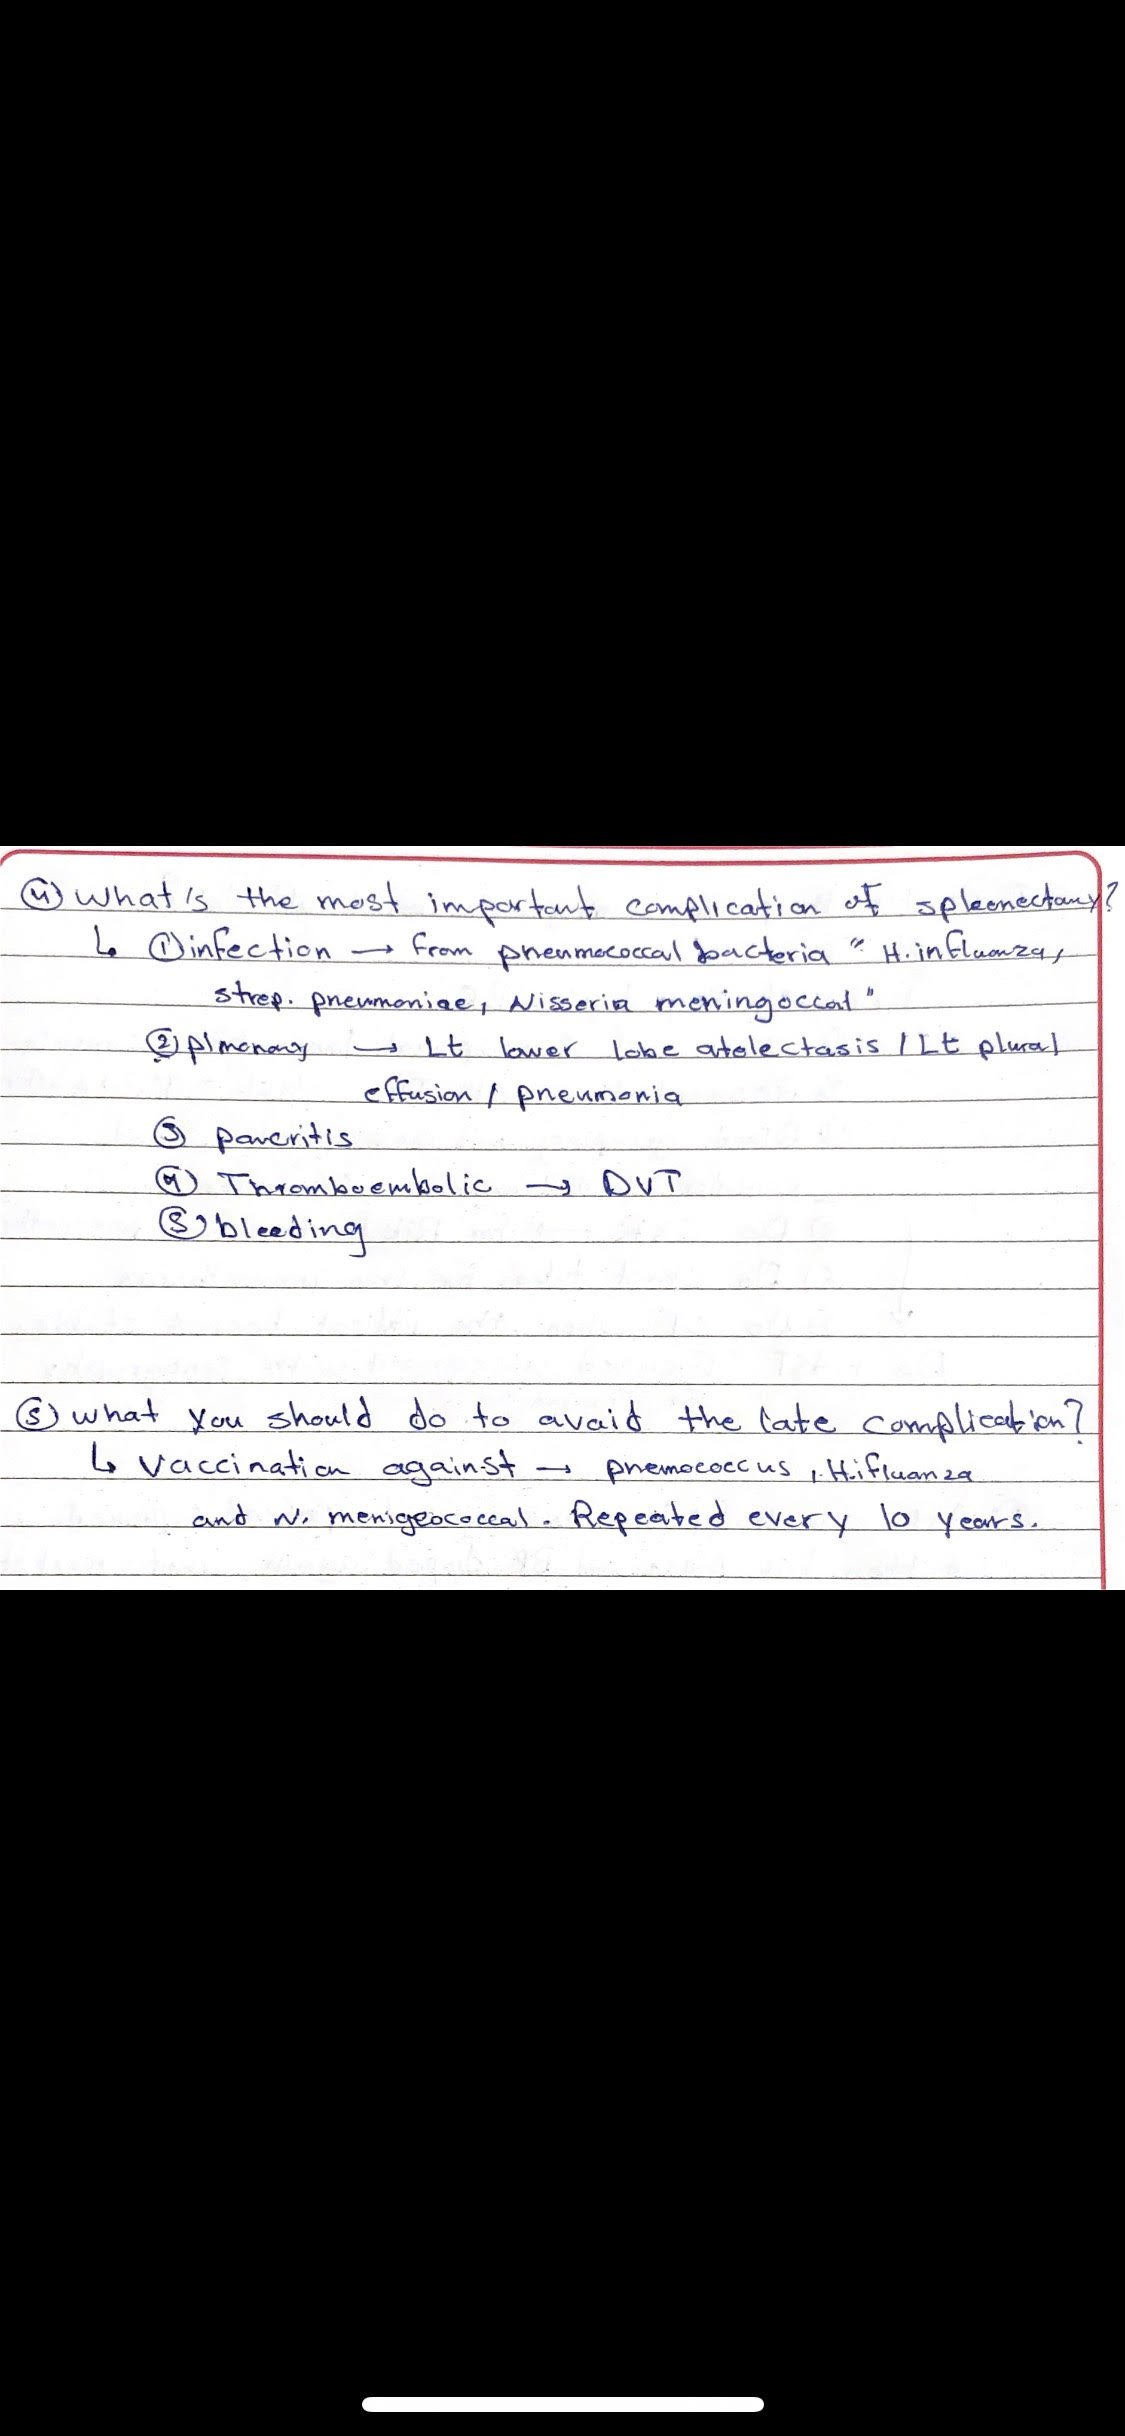 ④ What's the most important complication of spleenectomy?
↳ ① infection → from pneumococcal bacteria " H. influanza,
strep. pneumoniae, Nisseria meningoccal "
② plmonary → Lt lower lobe atelectasis / Lt plural
effusion / pneumonia
③ pancritis
④ Thromboembolic → DVT
⑤ bleeding
⑤ what you should do to avoid the late complication?
↳ Vaccination against → pnemococcus , H.ifluanza
and N. menigeococcal. Repeated every 10 years.